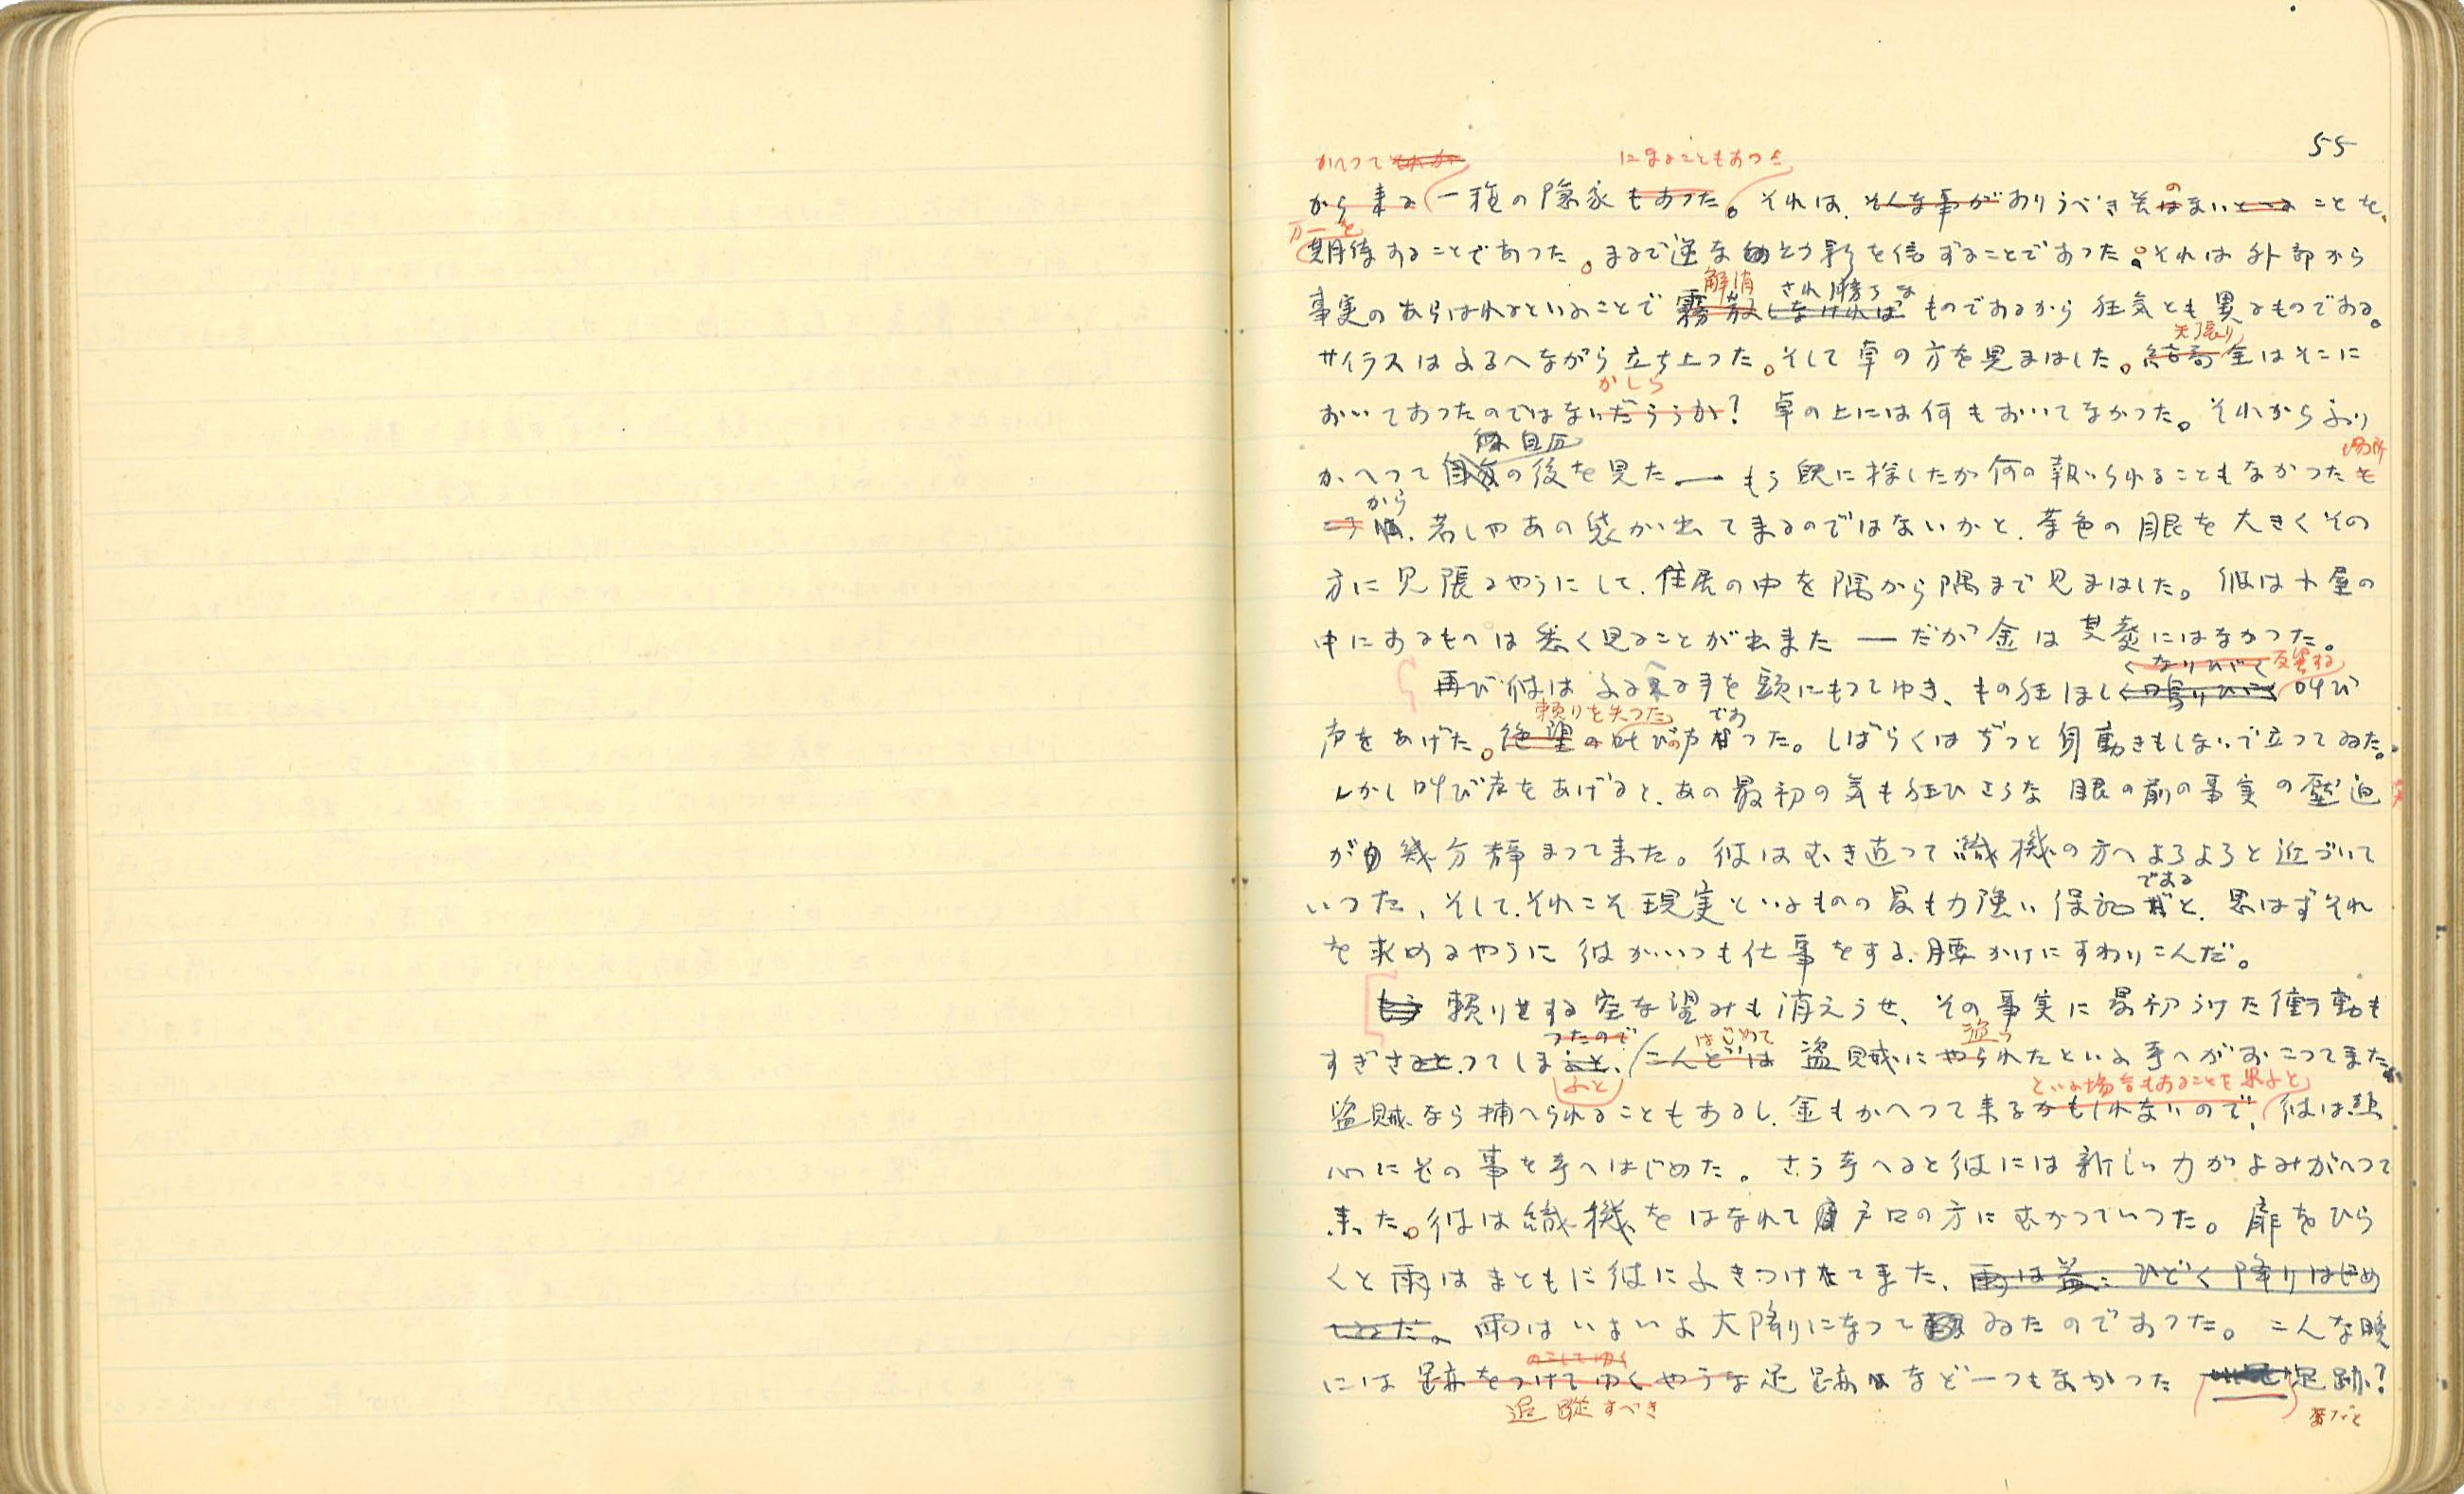 55
かへつて にすることもあつた
から来る一種の隠家もあつた。それは、そんな事がありうべき筈はないといふことを、
の
万一を
期待することであつた。まるで逆な幻影を信ずることであつた。それは外部から
解消 され勝ちな
事実のあらはれるといふことで霧散しなければものであるから狂気とも異るものである。
矢張り
サイラスはふるへながら立ち上つた。そして卓の方を見まはした。結局金はそこに
かしら
おいてあつたのではないだらうか? 卓の上には何もおいてなかつた。それからふり
自分 場所
かへつて自分の後を見た ― もう既に探したが何の報いられることもなかつたそ
から
若しやあの袋が出て来るのではないかと、茶色の眼を大きくその
方に見張るやうにして、住居の中を隅から隅まで見まはした。彼は小屋の
中にあるものは悉く見ることが出来た ― だが金は其処にはなかつた。
くなりひびく 反響する
再び彼はふるへる手を頭にもつてゆき、もの狂ほしく鳴りひびく叫び
頼りを失つた であ
声をあげた。絶望の叫びの声だつた。しばらくはぢつと身動きもしないで立つてゐた。
しかし叫び声をあげると、あの最初の気も狂ひさうな眼の前の事実の壓迫
が幾分静まつて来た。彼はむき直つて織機の方へよろよろと近づいて
である
いつた、そして、それこそ現実といふものの最も力強い保証だと、思はずそれ
を求めるやうに彼がいつも仕事をする腰かけにすわりこんだ。
もう 頼りをする空な望みも消えうせ、その事実に最初うけた衝動も
つたので はじめて 盗う
すぎさつてしまふと、こんどは盗賊にやられたといふ考へがおこつてきた
ふと といふ場合もあることを思ふと
盗賊なら捕へられることもあるし、金もかへつて来るかもしれないので、彼は熱
心にその事を考へはじめた。さう考へると彼には新しい力がよみがへつて
来た。彼は織機をはなれて戸口の方にむかつていつた。扉をひら
くと雨はまともに彼にふきつけて来た、雨は益々ひどく降りはじめ
てゐた。雨はいよいよ大降りになつてゐたのであつた。こんな晩
のこしてゆく
には跡をつけてゆくやうな足跡などーつもなかつた 足跡?
追蹤すべき